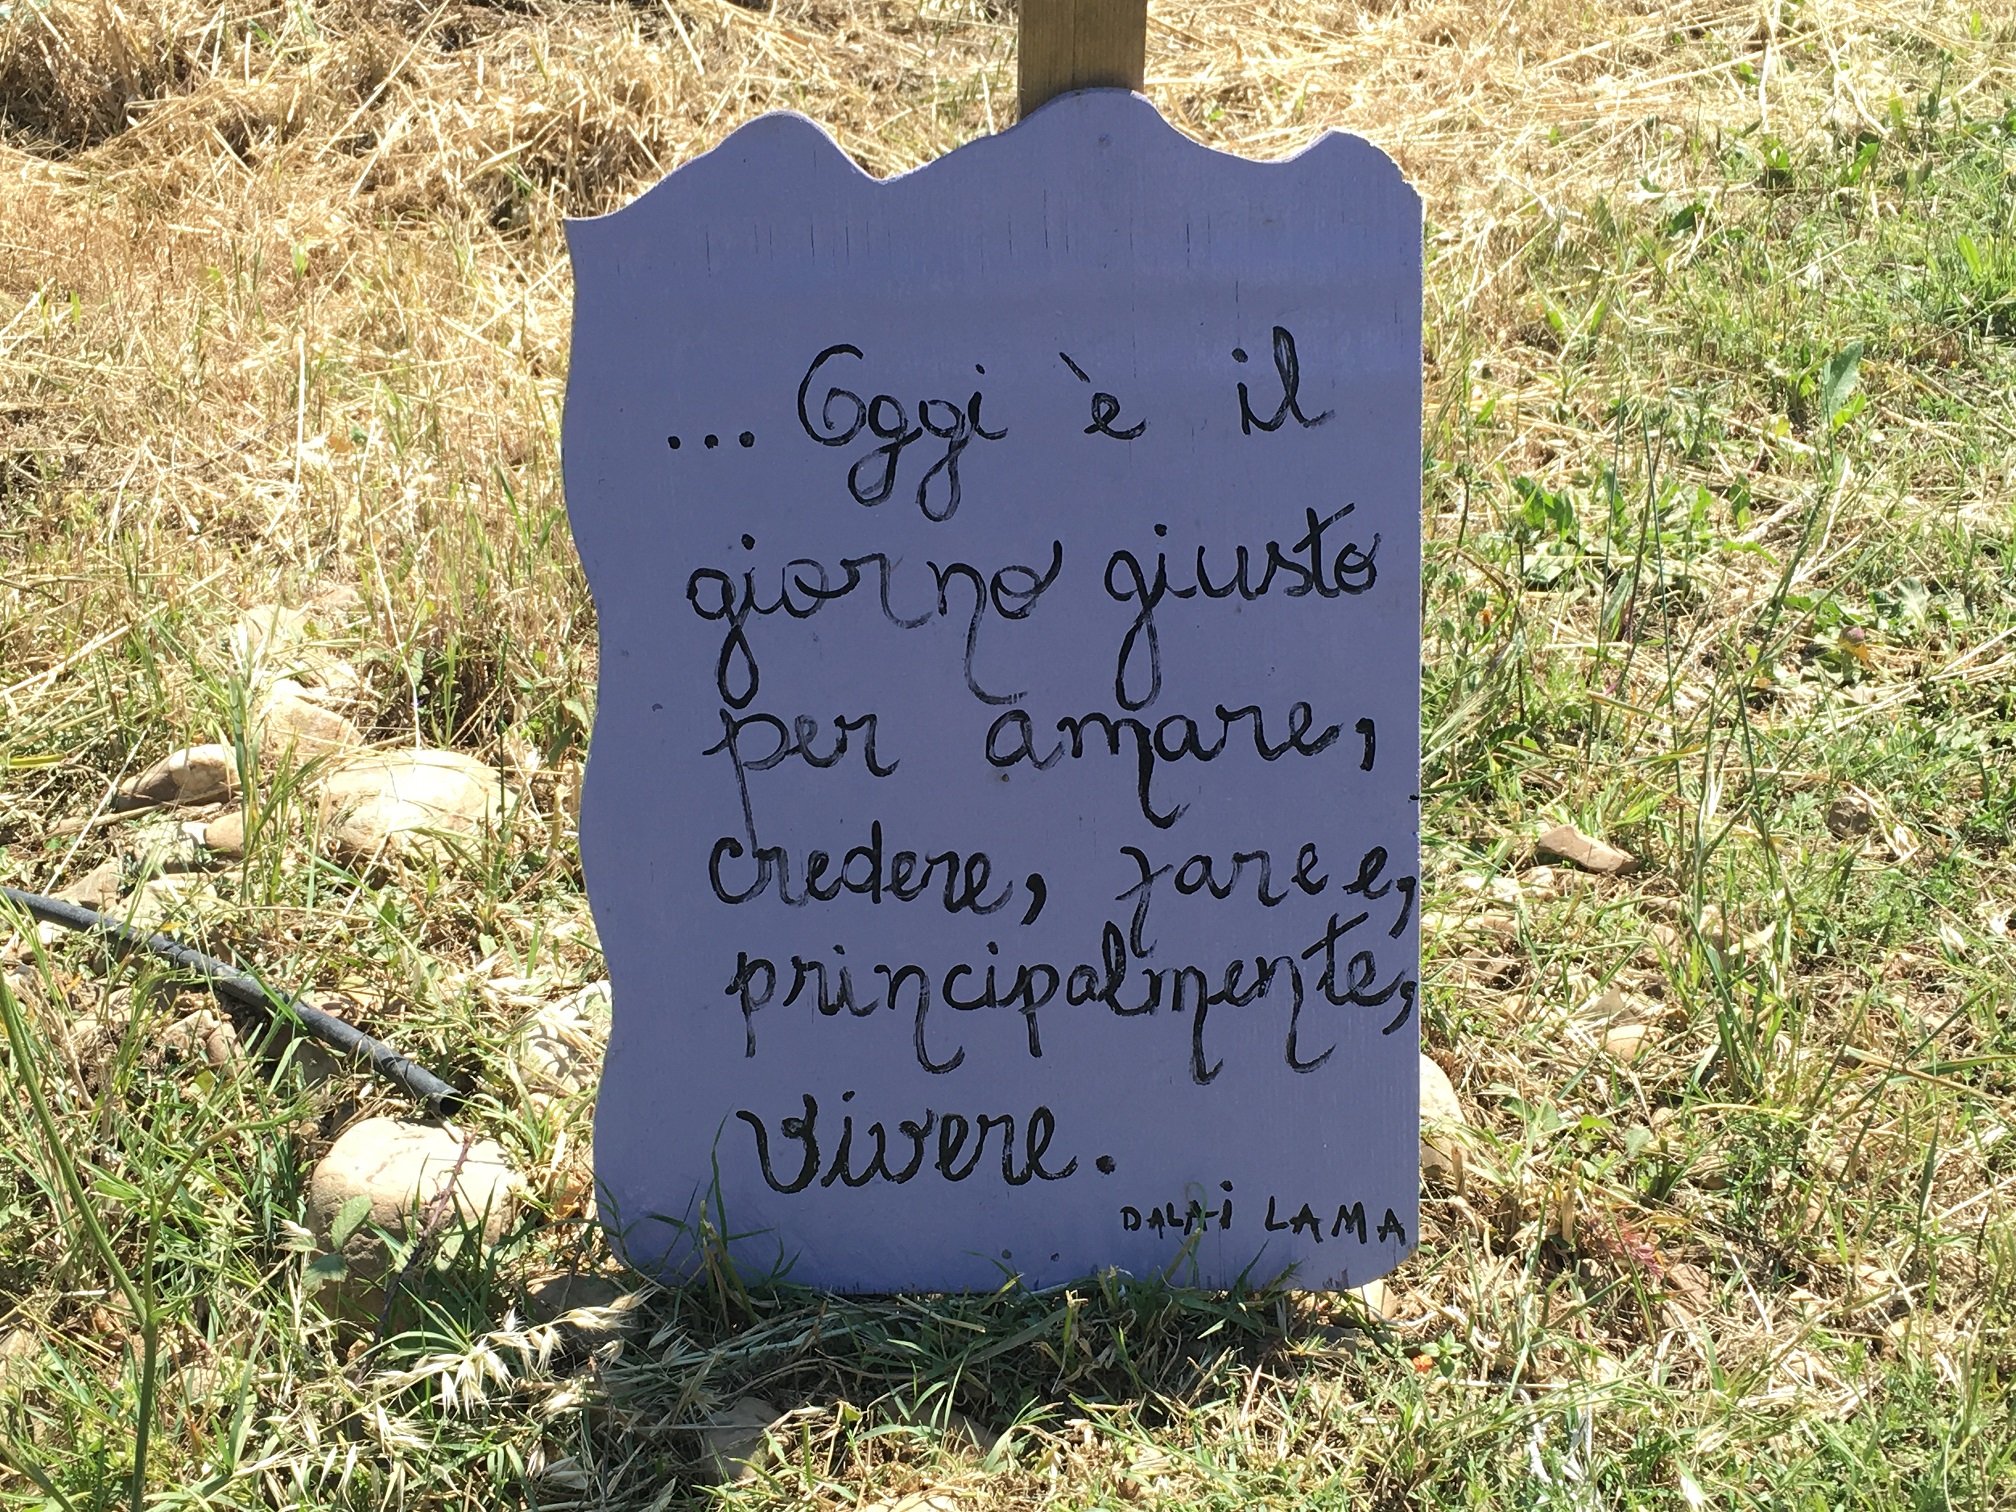 ... Oggi è il
giorno giusto
per amare,
credere, fare e,
principalmente,
vivere.
DALAi LAMA